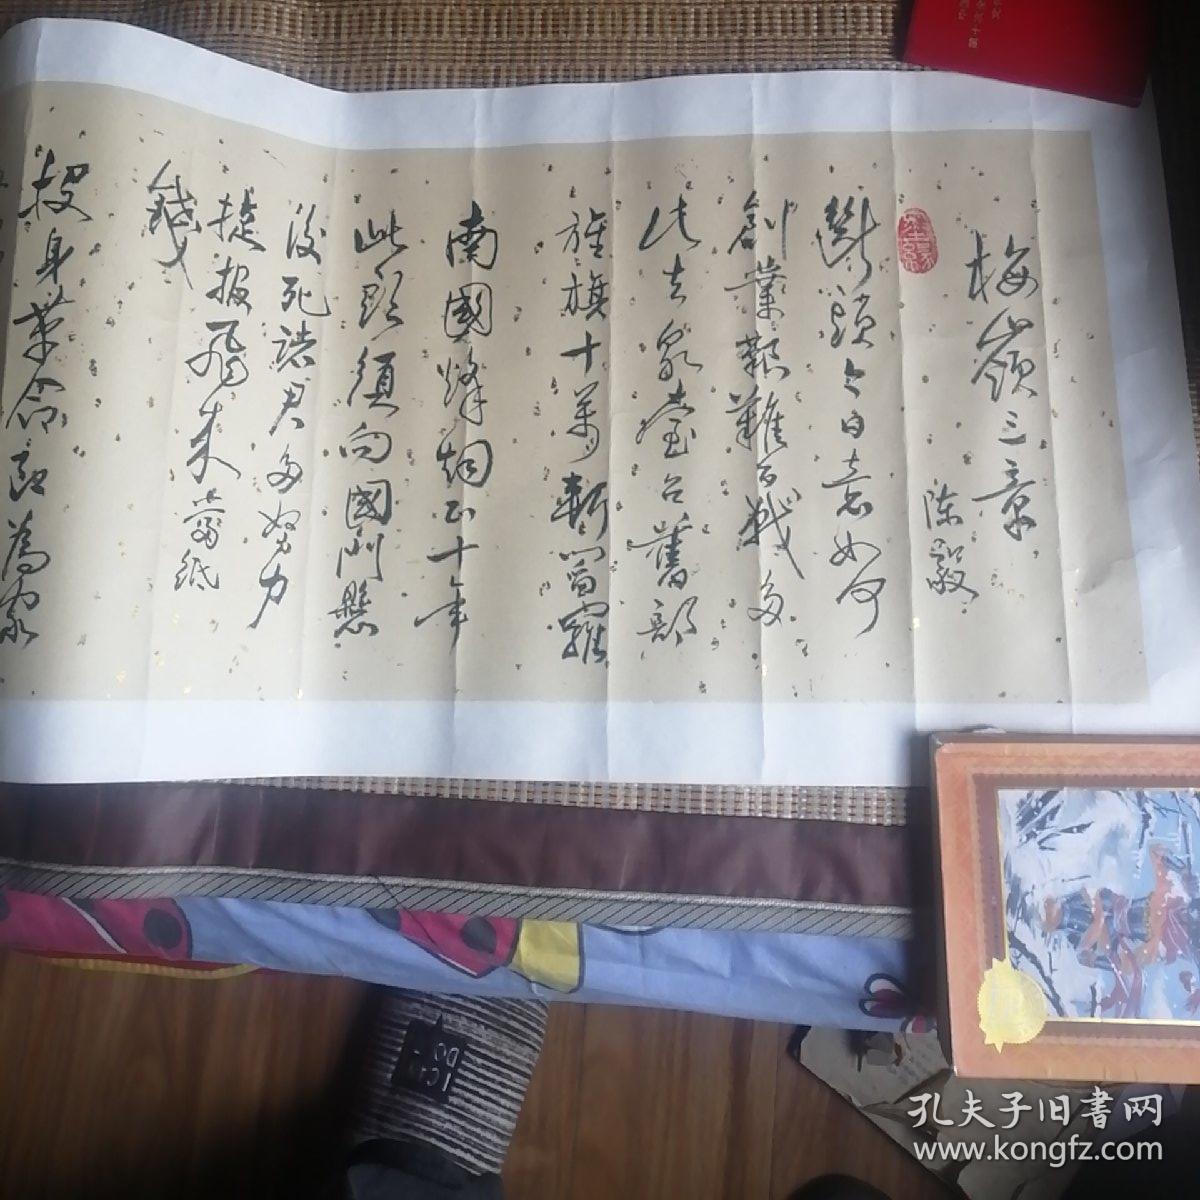 梅嶺三章
陈毅
斷頭今日意如何
創業艱難百戰多
此去泉臺召舊部
旌旗十萬斬閻羅
南國烽烟正十年
此頭須向國門懸
後死諸君多努力
捷报飛來當紙
錢
投身革命即為家
孔夫子旧书网
www.kongfz.com